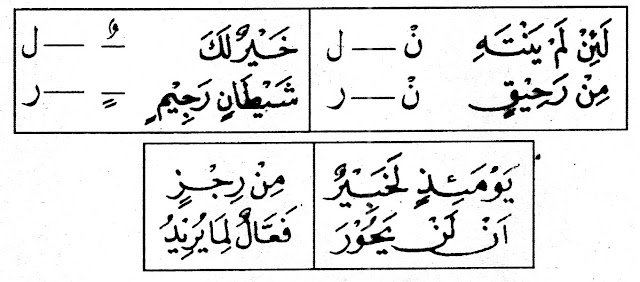 لَئِنْ لَمْ يَنْتَهِ نْ — ل خَيْرٌ لَكَ ـٌ — ل
مِنْ رَحِيْقٍ نْ — ر شَيْطَانٍ رَجِيْمٍ ـٍ — ر
يَوْمَئِذٍ لَخَبِيْرٌ مِنْ رِجْزٍ
اَنْ لَنْ يَحُوْرَ فَعَالٌ لِمَا يُرِيْدُ